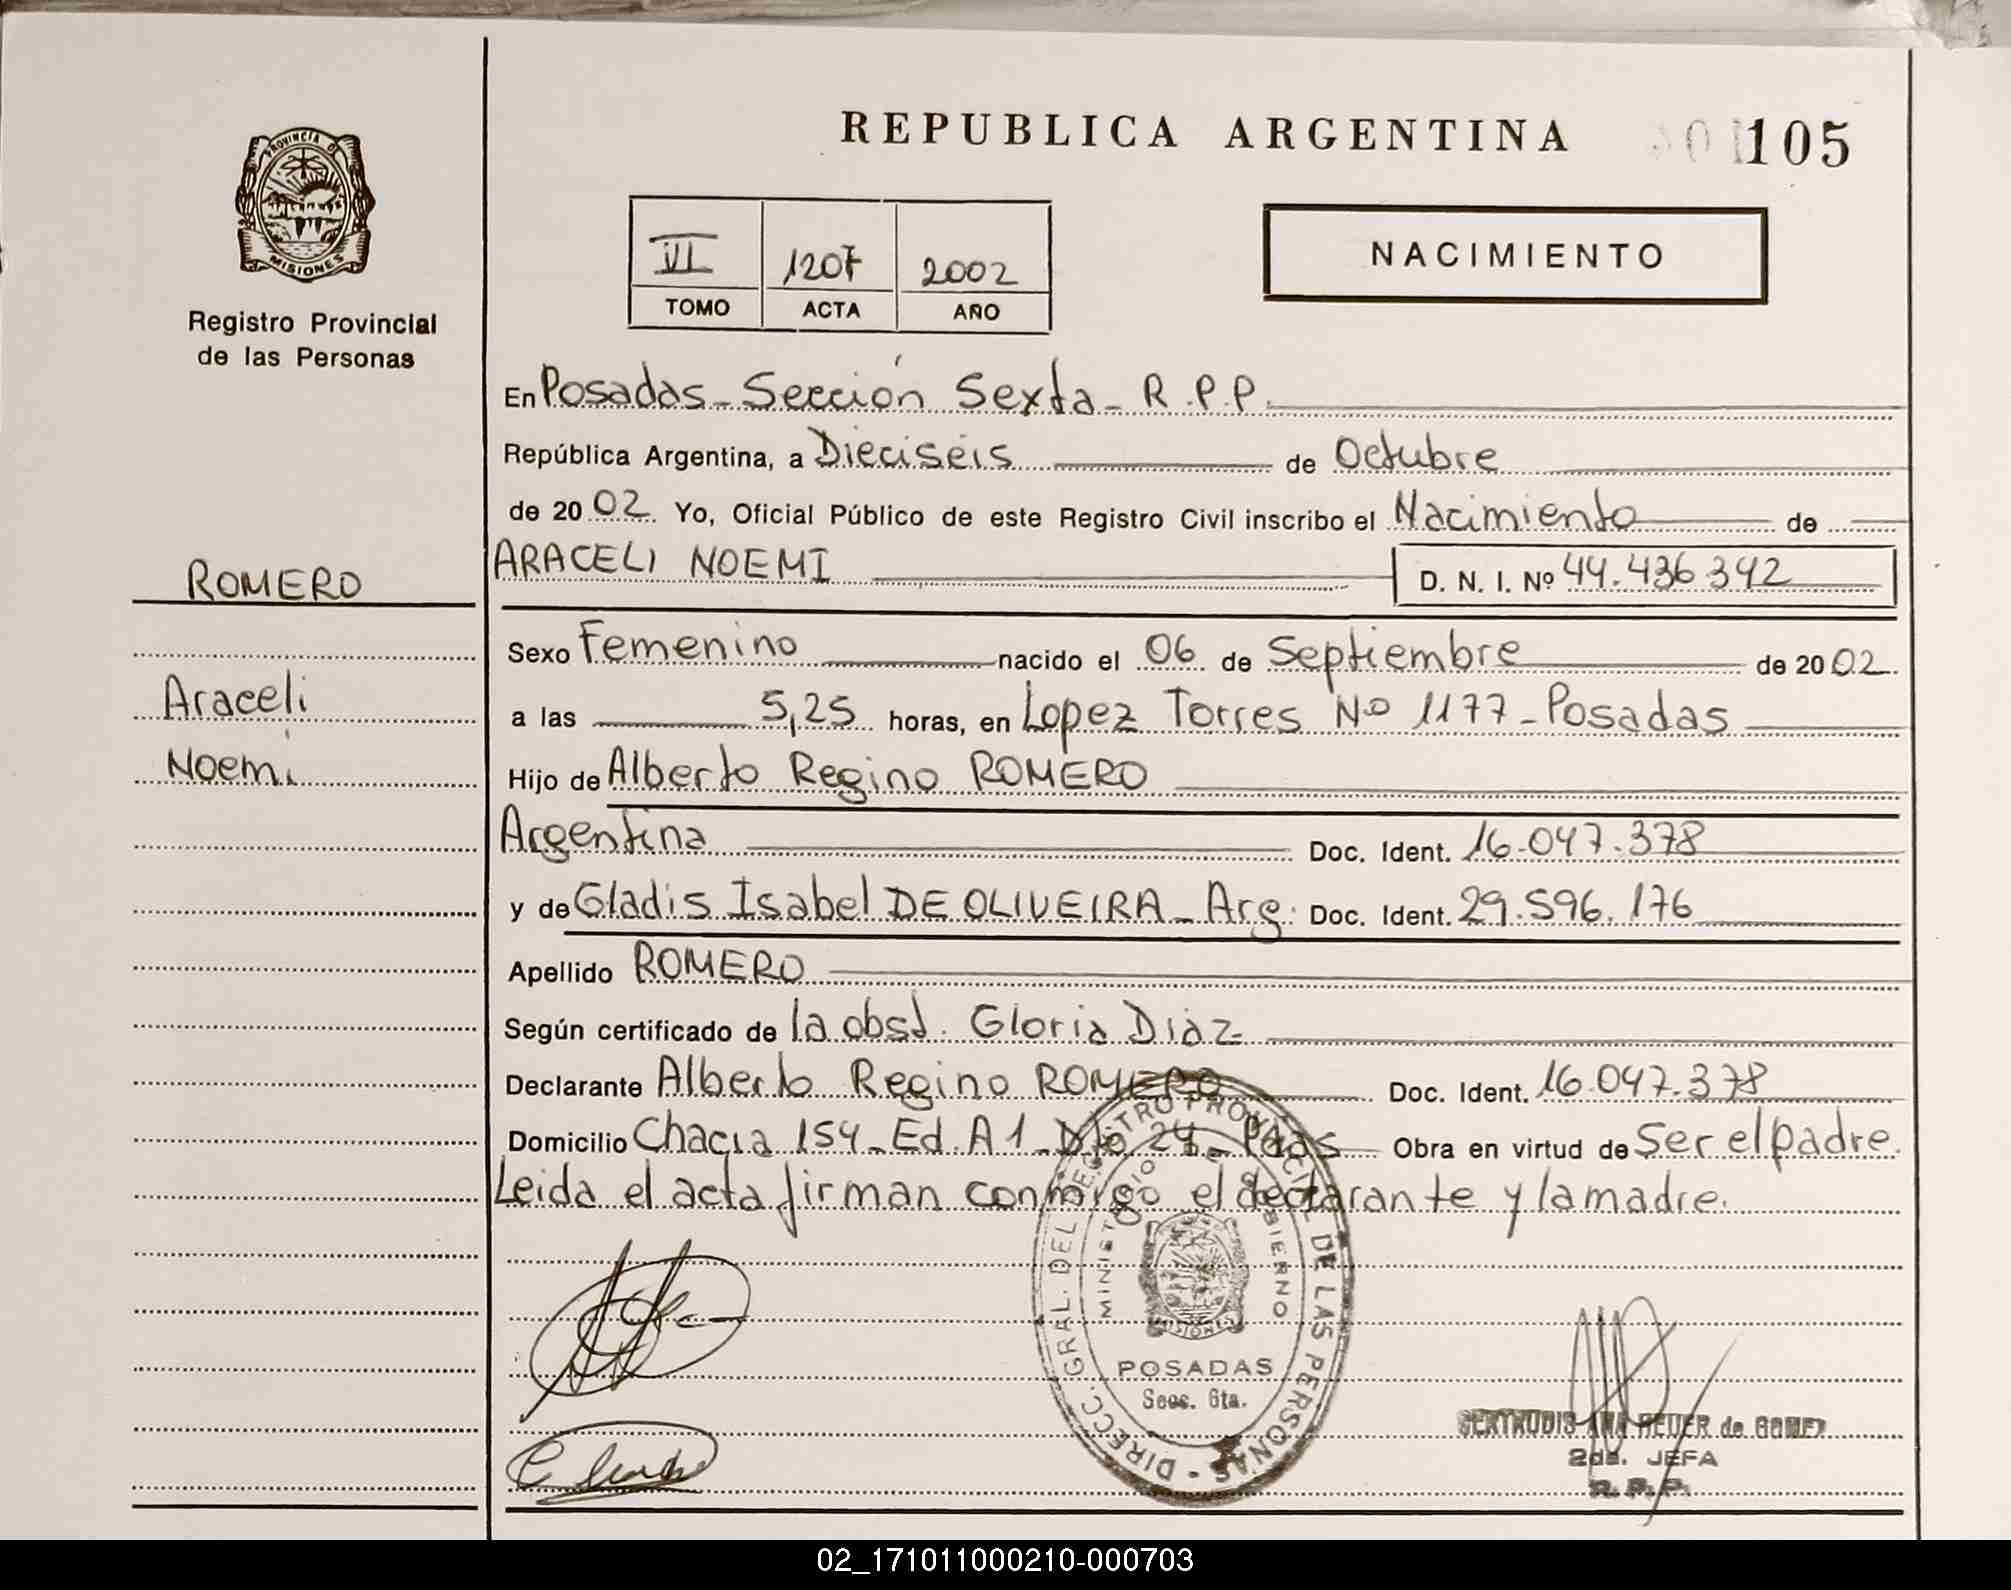 REPUBLICA ARGENTINA 105
PROVINCIA DE
MISIONES
Registro Provincial
de las Personas
VI 1207 2002
TOMO ACTA AÑO
NACIMIENTO
En Posadas - Sección Sexta - R.P.P.
República Argentina, a Dieciséis de Octubre
de 20 02 Yo, Oficial Público de este Registro Civil inscribo el Nacimiento de
ROMERO
ARACELI NOEMI D. N. I. Nº 44.436.342
Sexo Femenino nacido el 06 de Septiembre de 20 02
Araceli
a las 5,25 horas, en Lopez Torres Nº 1177 - Posadas
Noemi
Hijo de Alberto Regino ROMERO
Argentina Doc. Ident. 16.047.378
y de Gladis Isabel DE OLIVEIRA - Arg. Doc. Ident. 29.596.176
Apellido ROMERO
Según certificado de la obst. Gloria Diaz
Declarante Alberto Regino ROMERO Doc. Ident. 16.047.378
Domicilio Chacra 154 - Ed. A1 - Dto 24 - Pdas Obra en virtud de Ser el padre.
Leida el acta firman conmigo el declarante y la madre.
DIRECC. GRAL. DEL REGISTRO PROVINCIAL DE LAS PERSONAS
MINISTERIO DE GOBIERNO
MISIONES
POSADAS
Secc. 6ta.
GERTRUDIS ANA HEUER de GOMEZ
2da. JEFA
R.P.P.
02_171011000210-000703